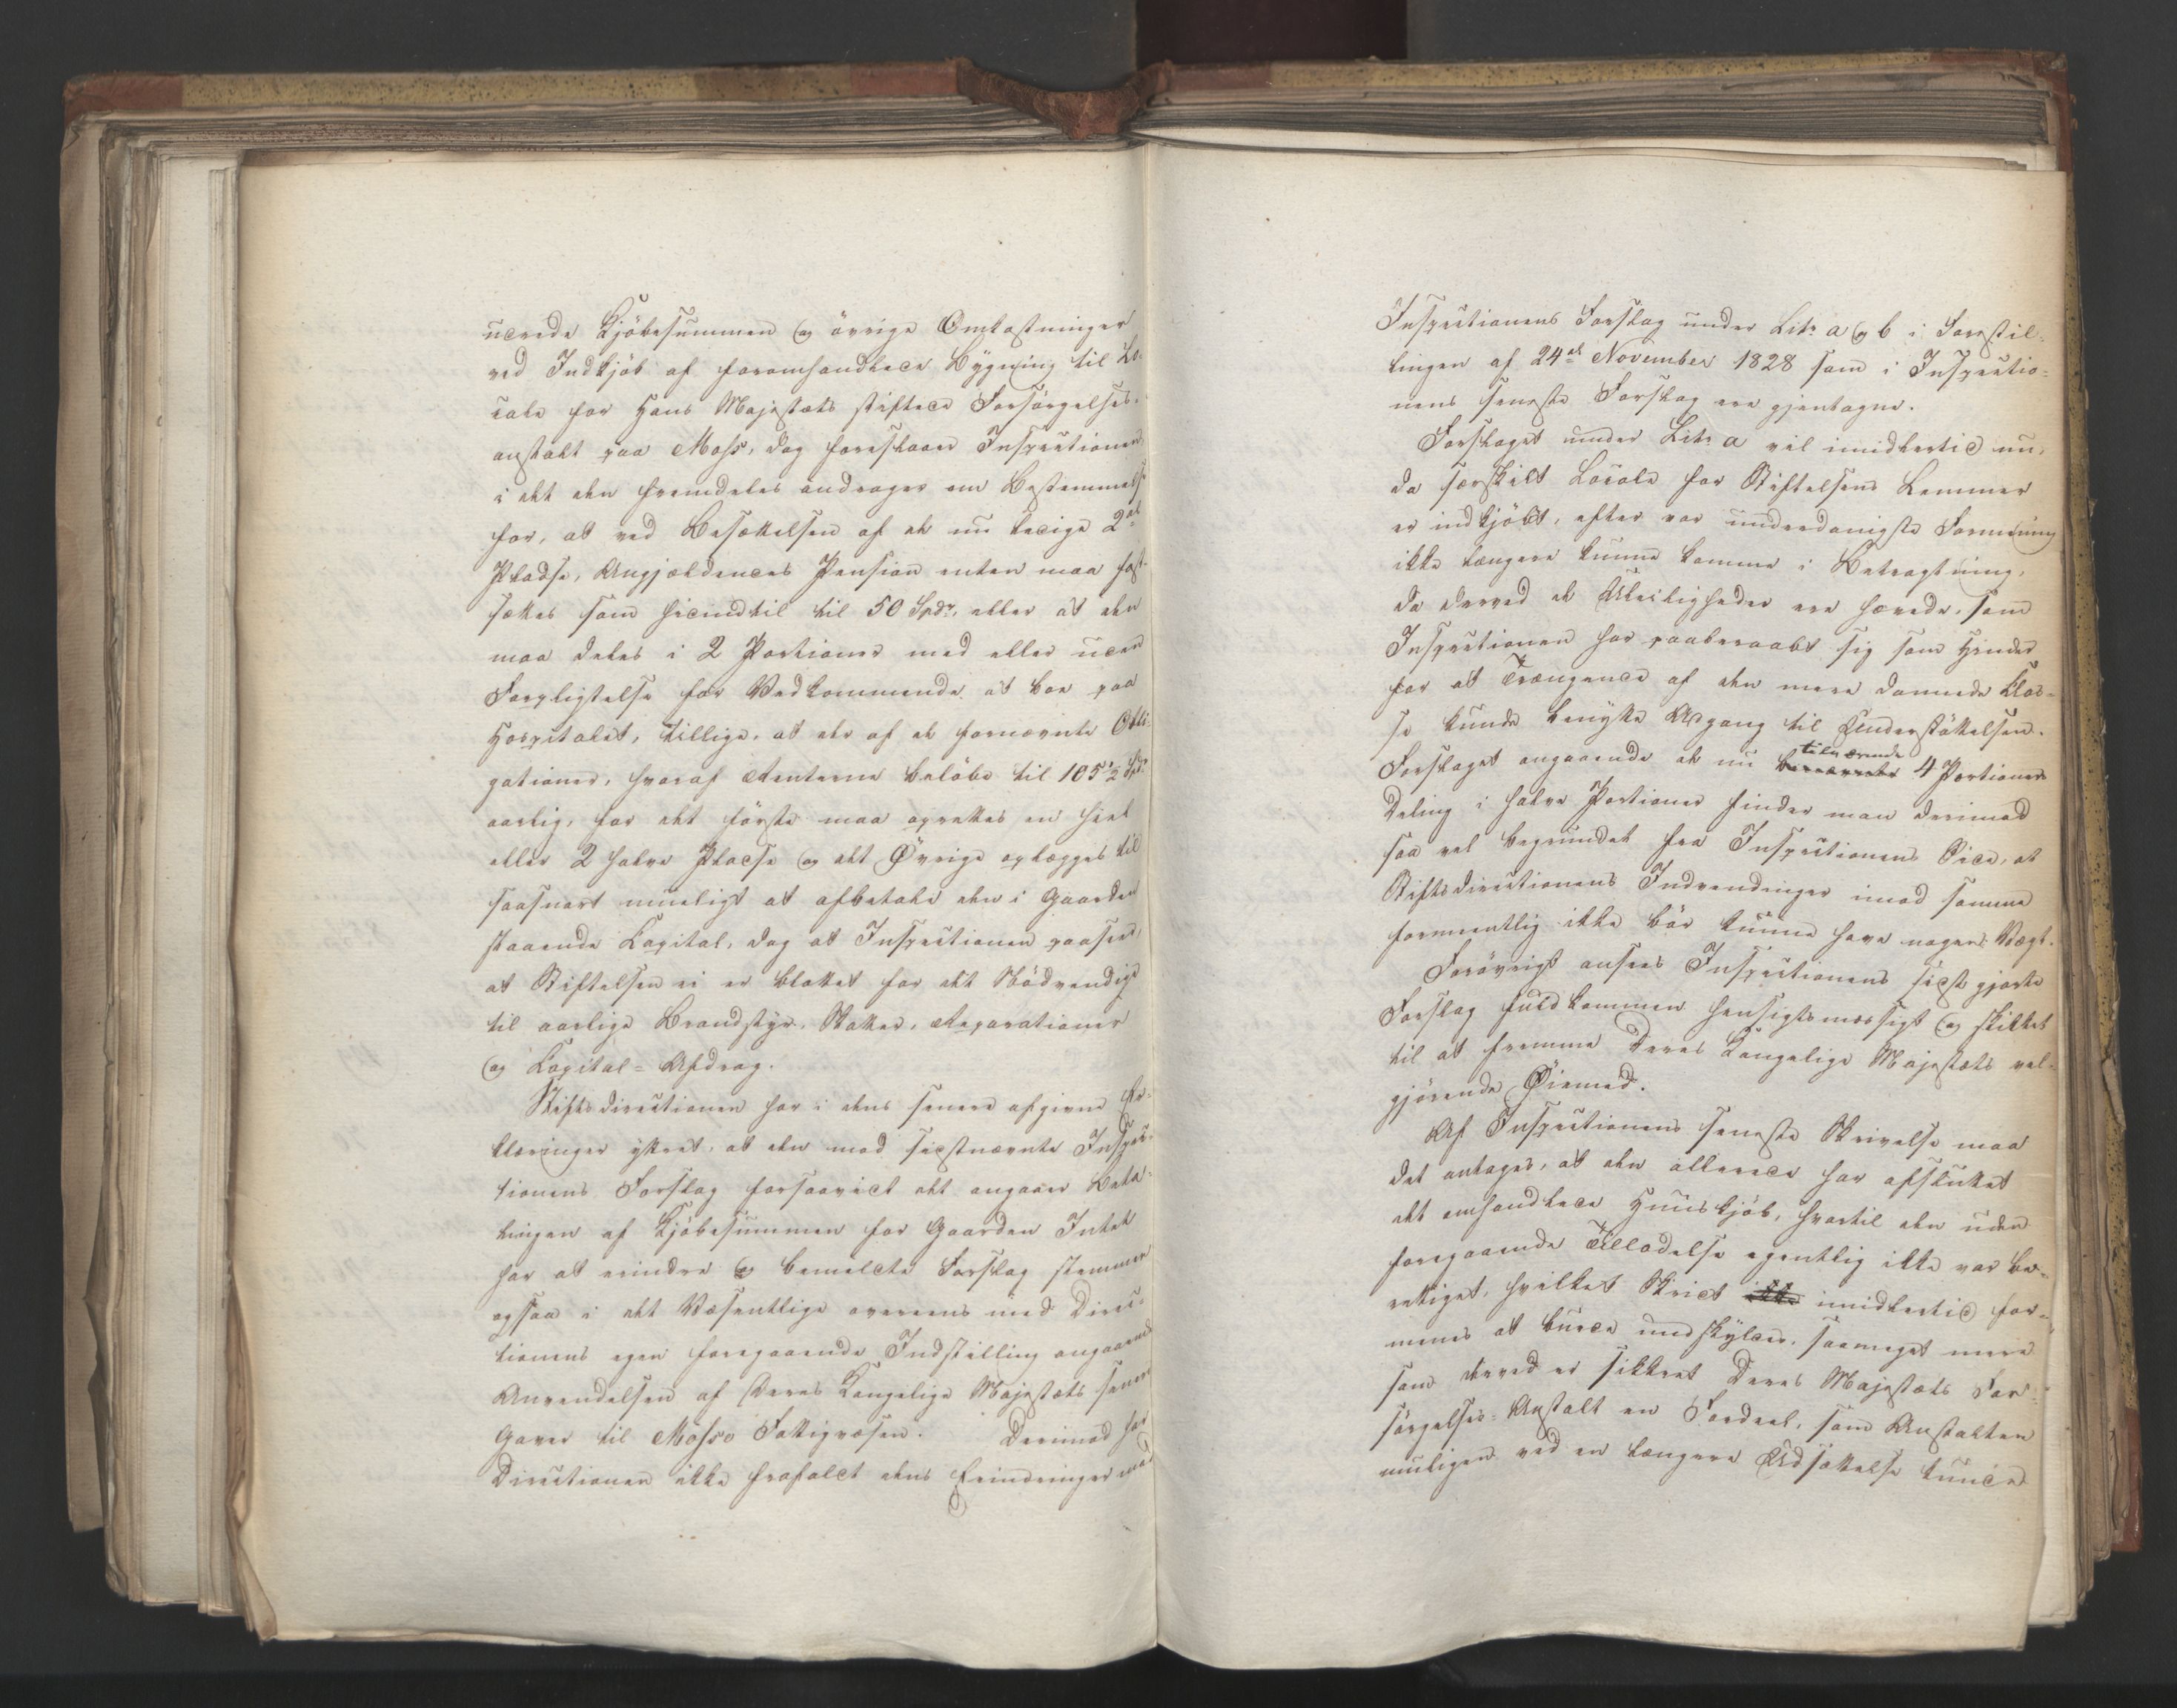 ucerede Kjöbesummen og övrige Omkostninger
ved Indkjöb af foromhandlede Bygning til Lo-
cale for Hans Majestæts stiftede Forsörgelses-
anstalt paa Moss, dog foreslaaer Inspectionen
i det den fremdeles andrager om Bestemmelse
for, at ved Besættelsen af de nu ledige 2de
Pladse, Angjældendes Pension enten maa fast-
sættes som hidindtil til 50 Spdr, eller at den
maa deles i 2 Portioner med eller uden
Forpligtelse for Vedkommende at boe paa
Hospitalet, tillige, at der af de fornævnte Obli-
gationer, hvoraf Renterne beløbe til 105½ Spdr
aarlig, for det förste maa oprettes en heel
eller 2 halve Pladse og det Øvrige oplægges til
saasnart mueligt at afbetale den i Gaarden
staaende Kapital, dog at Inspectionen paaseer,
at Stiftelsen ei er blottet for det Nödvendige
til aarlige Brandstyr, Skatter, Reparationer
og Kapital-Afdrag.
Stiftsdirectionen har i dens senere afgivne Er-
klæringer yttret, at den mod sidstnævnte Inspec-
tionens Forslag forsaavidt det angaaer Beta-
lingen af Kjöbesummen for Gaarden Intet
har at erindre og bemeldte Forslag stemmer
ogsaa i det Væsentlige overeens med Direc-
tionens egen foregaaende Indstilling angaaende
Anvendelsen af Deres Kongelige Majestæts senere
Gaver til Mosse Fattigvæsen. Derimod har
Directionen ikke frafaldt dens Erindringer mod
Inspectionens Forslag under Litr a og b i Forestil-
lingen af 24de November 1828 som i Inspectio-
nens seneste Forslag ere gjentagne.
Forslaget under Litr a vil imidlertid nu,
da særskilt Locale for Stiftelsens Lemmer
er indkjöbt, efter vor underdanigste Formening
ikke længere kunne komme i Betragtning,
da derved de Uleiligheder ere hævede, som
Inspectionen har paaberaabt sig som Hinder
for at Trængende af den mere dannede Klas-
se kunde benytte Adgang til Understöttelsen.
Forslaget angaaende de nu tilværende 4 Portioners
Deling i halve Portioner finder man derimod
saa vel begrundet fra Inspectionens Side, at
Stiftsdirectionens Indvendinger imod samme
formeentlig ikke bör kunne have nogen Vægt.
Forövrigt ansees Inspectionens sidst gjorte
Forslag fuldkommen hensigtsmæssigt og skikket
til at fremme Deres Kongelige Majestæts vel-
gjörende Øiemed.
Af Inspectionens seneste Skrivelse maa
det antages, at den allerede har afsluttet
det omhandlede Huuskjöb, hvortil den uden
foregaaende Tilladelse egentlig ikke var be-
rettiget, hvilket Skridt imidlertid for-
menes at burde undskyldes, saameget mere
som derved er sikkret Deres Majestæts For-
sörgelses-Anstalt en Fordeel, som Anstalten
muligen ved en længere Udsættelse kunde